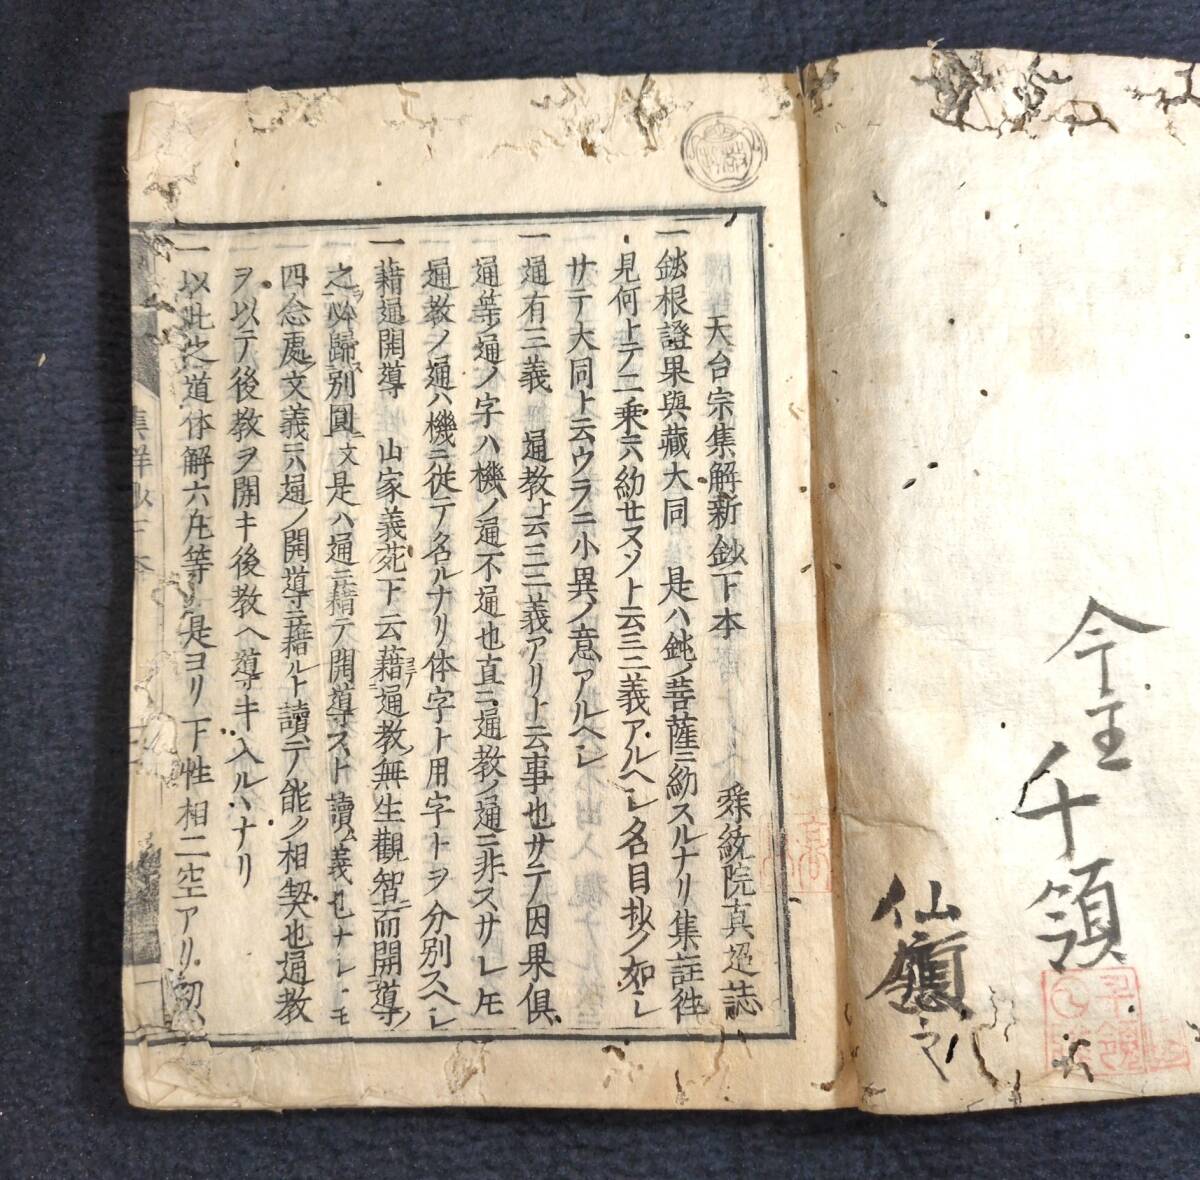 今主
千領
仙應之
天台宗集解新鈔下本
舜統院真迢誌
一鈍根證果與藏大同 是ハ鈍ノ菩薩ニ約スルナリ集註往
見何トテ二乗ニハ約セヌソト云ニ二義アルヘシ名目抄ノ如シ
サテ大同ト云ウラニ小異ノ意アルヘシ
一通有三義 通教ト云ニ三義アリト云事也サテ因果俱
通等ノ通ノ字ハ機ノ通不通也直ニ通教ノ通ニ非スサレ𪜈
通教ノ通ハ機ニ従テ名ルナリ体字ト用字トヲ分別スヘシ
一藉通開導 山家義苑下云藉通教無生觀智而開導
之必歸別圓文是ハ通ニ藉テ開導スト讀ム義也ナレ𪜈
四念處文義ハ通ノ開導ニ藉ルト讀テ能ク相契也通教
ヲ以テ後教ヲ開キ後教ヘ導キ入ルヽナリ
一以此之道体解六凡等 是ヨリ下性相二空アリ初